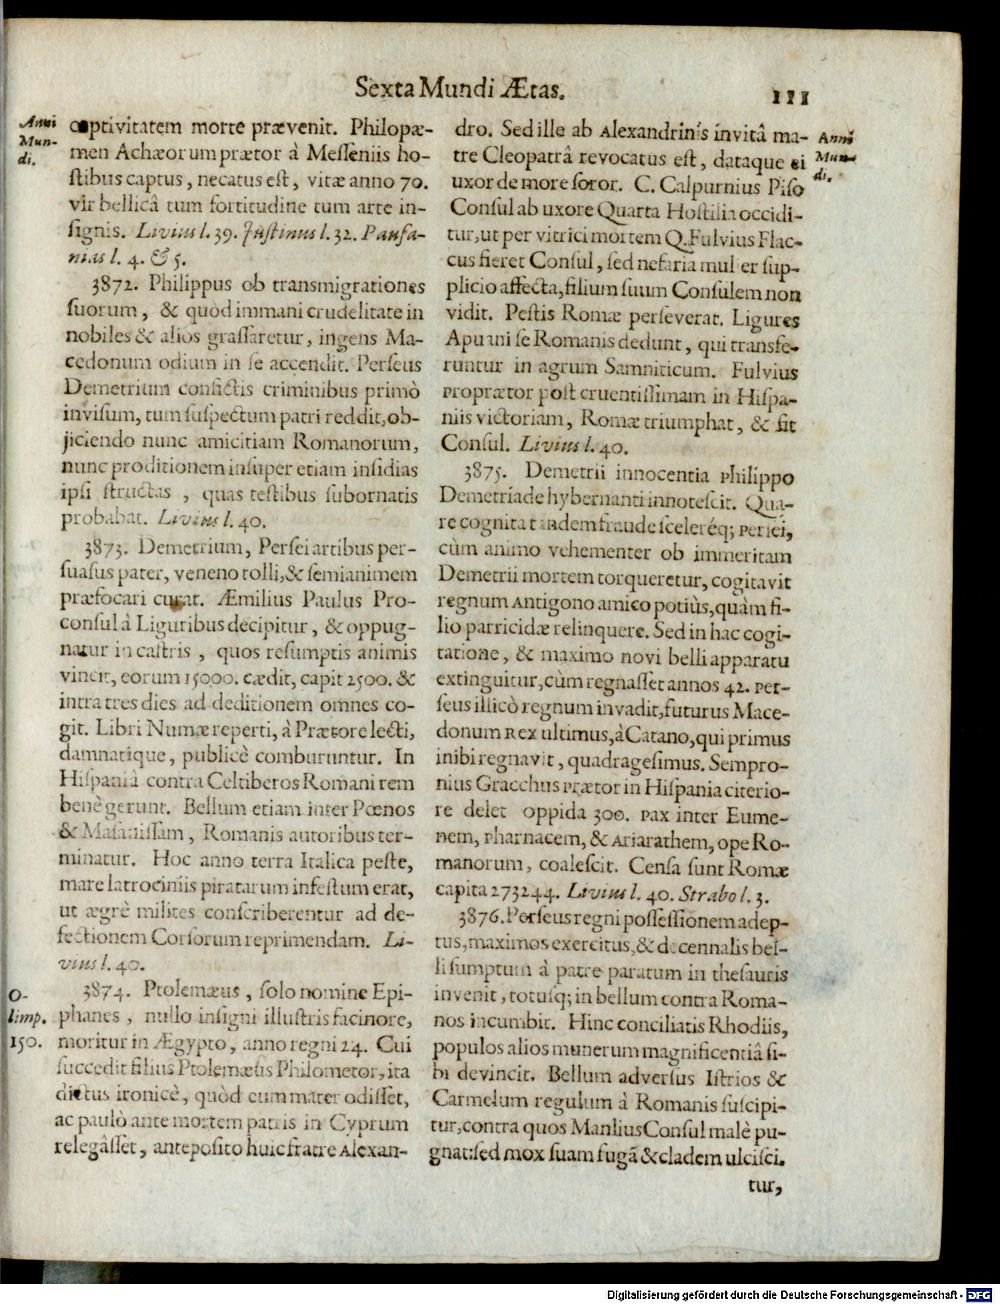 Sexta Mundi Ætas.
111
Anni
Mun-
di.
captivitatem morte prævenit. Philopæ-
men Achæorum prætor à Messeniis ho-
stibus captus, necatus est, vitæ anno 70.
vir bellicâ tum fortitudine tum arte in-
signis. Livius l. 39. Justinus l. 32. Pausa-
nias l. 4. & 5.
3872. Philippus ob transmigrationes
suorum, & quòd immani crudelitate in
nobiles & alios grassaretur, ingens Ma-
cedonum odium in se accendit. Perseus
Demetrium confictis criminibus primò
invisum, tum suspectum patri reddit, ob-
jiciendo nunc amicitiam Romanorum,
nunc proditionem insuper etiam insidias
ipsi structas, quas testibus subornatis
probabat. Livius l. 40.
3873. Demetrium, Persei artibus per-
suasus pater, veneno tolli, & semianimem
præfocari curat. Æmilius Paulus Pro-
consul à Liguribus decipitur, & oppug-
natur in castris, quos resumptis animis
vincit, eorum 15000. cædit, capit 2500. &
intra tres dies ad deditionem omnes co-
git. Libri Numæ reperti, à Prætore lecti,
damnatique, publicè comburuntur. In
Hispaniâ contra Celtiberos Romani rem
benè gerunt. Bellum etiam inter Pœnos
& Masanissam, Romanis autoribus ter-
minatur. Hoc anno terra Italica peste,
mare latrociniis piratarum infestum erat,
ut ægrè milites conscriberentur ad de-
fectionem Corsorum reprimendam. Li-
vius l. 40.
O-
limp.
150.
3874. Ptolemæus, solo nomine Epi-
phanes, nullo insigni illustris facinore,
moritur in Ægypto, anno regni 24. Cui
succedit filius Ptolemæus Philometor, ita
dictus ironicè, quòd cum mater odisset,
ac paulò ante mortem patris in Cyprum
relegâsset, anteposito huic fratre Alexan-
Anni
Mun-
di.
dro. Sed ille ab Alexandrinis invitâ ma-
tre Cleopatrâ revocatus est, dataque ei
uxor de more soror. C. Calpurnius Piso
Consul ab uxore Quarta Hostilia occidi-
tur, ut per vitrici mortem Q. Fulvius Flac-
cus fieret Consul, sed nefaria mulier sup-
plicio affecta, filium suum Consulem non
vidit. Pestis Romæ perseverat. Ligures
Apuani se Romanis dedunt, qui transfe-
runtur in agrum Samniticum. Fulvius
proprætor post cruentissimam in Hispa-
niis victoriam, Romæ triumphat, & fit
Consul. Livius l. 40.
3875. Demetrii innocentia Philippo
Demetriade hybernanti innotescit. Qua-
re cognita tandem fraude scelereq; Persei,
cùm animo vehementer ob immeritam
Demetrii mortem torqueretur, cogitavit
regnum Antigono amico potiùs, quàm fi-
lio parricidæ relinquere. Sed in hac cogi-
tatione, & maximo novi belli apparatu
extinguitur, cùm regnasset annos 42. Per-
seus illicò regnum invadit, futurus Mace-
donum Rex ultimus, à Catano, qui primus
inibi regnavit, quadragesimus. Sempro-
nius Gracchus Prætor in Hispania citerio-
re delet oppida 300. Pax inter Eume-
nem, Pharnacem, & Ariarathem, ope Ro-
manorum, coalescit. Censa sunt Romæ
capita 273244. Livius l. 40. Strabo l. 3.
3876. Perseus regni possessionem adep-
tus, maximos exercitus, & decennalis bel-
li sumptum à patre paratum in thesauris
invenit, totusq; in bellum contra Roma-
nos incumbit. Hinc conciliatis Rhodiis,
populos alios munerum magnificentiâ si-
bi devincit. Bellum adversus Istrios &
Carmelum regulum à Romanis suscipi-
tur, contra quos Manlius Consul malè pu-
gnat: sed mox suam fugã & cladem ulcisci.
tur,
Digitalisierung gefördert durch die Deutsche Forschungsgemeinschaft - DFG